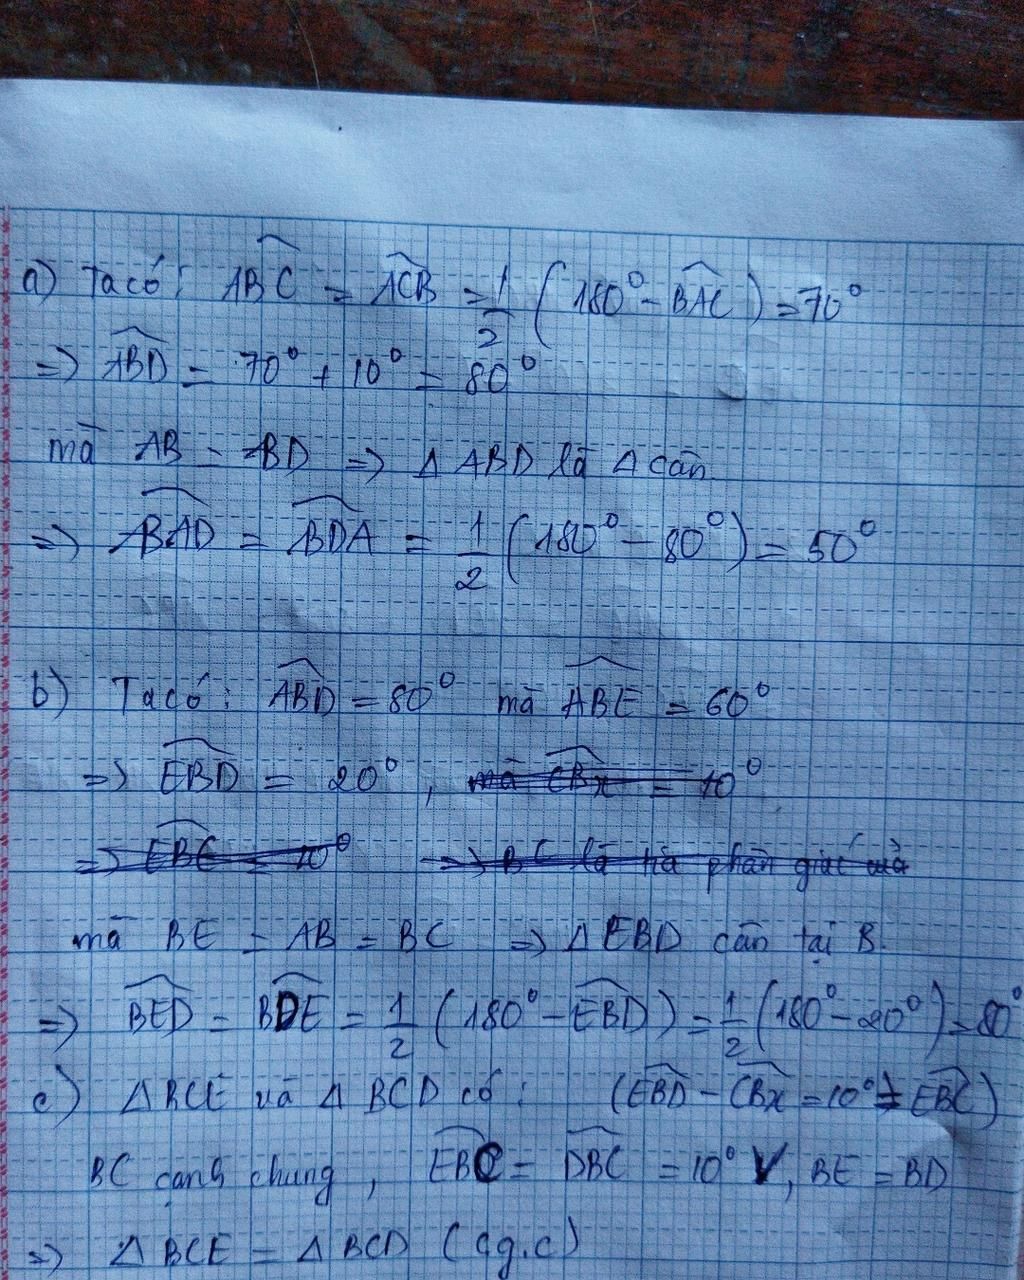 a) Ta có: ABC = ACB = 1/2 (180° - BAC) = 70°
=> ABD = 70° + 10° = 80°
mà AB = BD => Δ ABD là Δ cân.
=> BAD = BDA = 1/2 (180° - 80°) = 50°
b) Ta có: ABD = 80° mà ABE = 60°
=> EBD = 20°, mà CBx = 10°
=> EBC = 10° => BC là tia phân giác
mà BE = AB = BC => Δ EBD cân tại B.
=> BED = BDE = 1/2 (180° - EBD) = 1/2 (180° - 20°) = 80°
c) Δ BCE và Δ BCD có: (EBD - CBx = 10° = EBC)
BC cạnh chung, EBC = DBC = 10°, BE = BD
=> Δ BCE = Δ BCD (c.g.c)